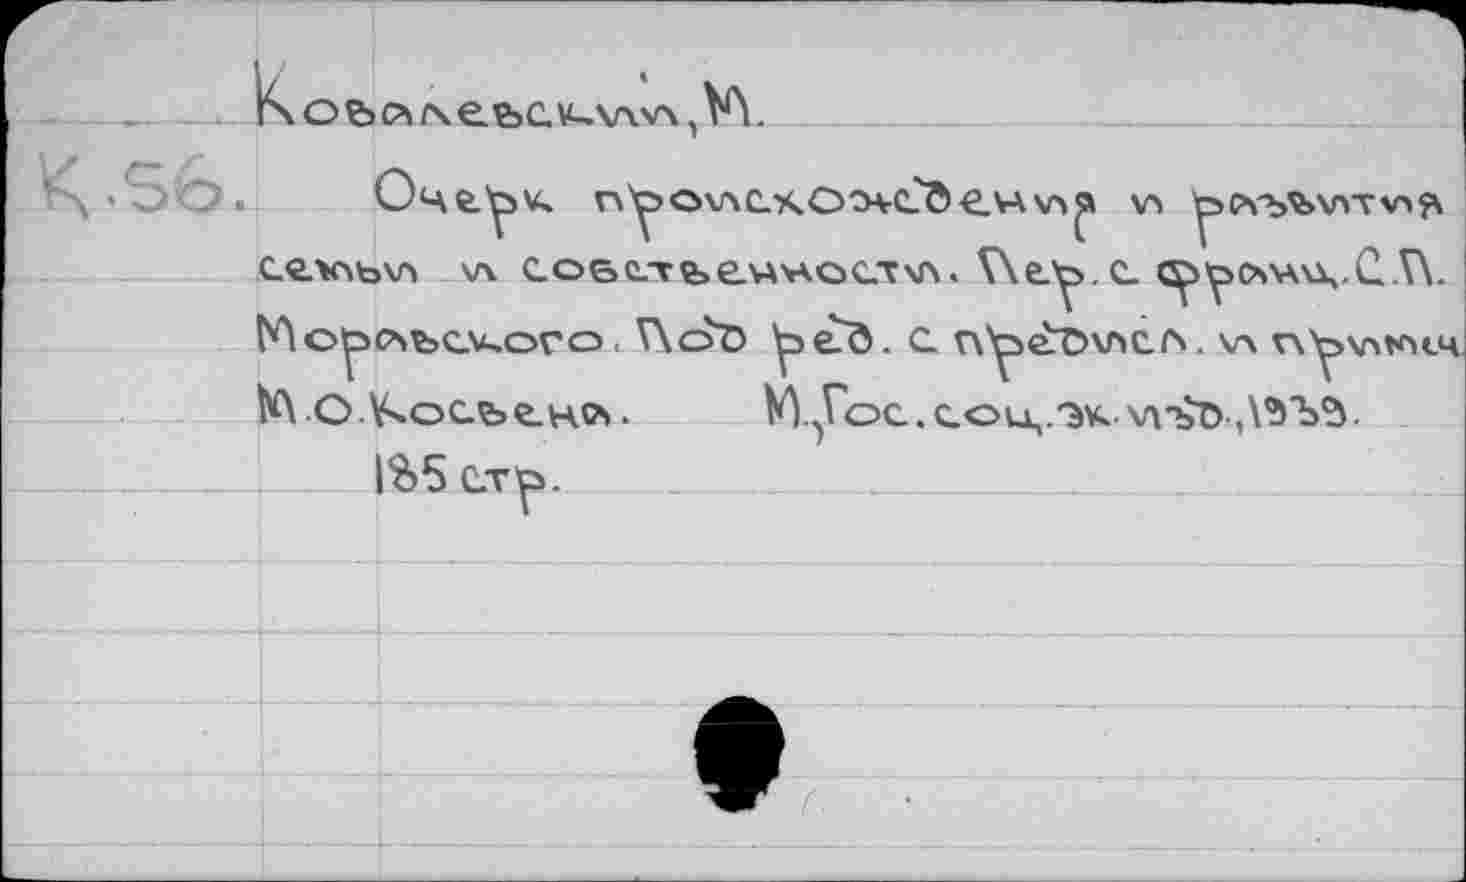 Ковалевский, М.
К.56. Очерк происхождения и развития
семьи и собственности. Пер. с франц. С.П.
Моравского. Под ред. с предисл. и примеч
М.О.Косвена. М., Гос. соц.эк. изд., 1939.
185 стр.